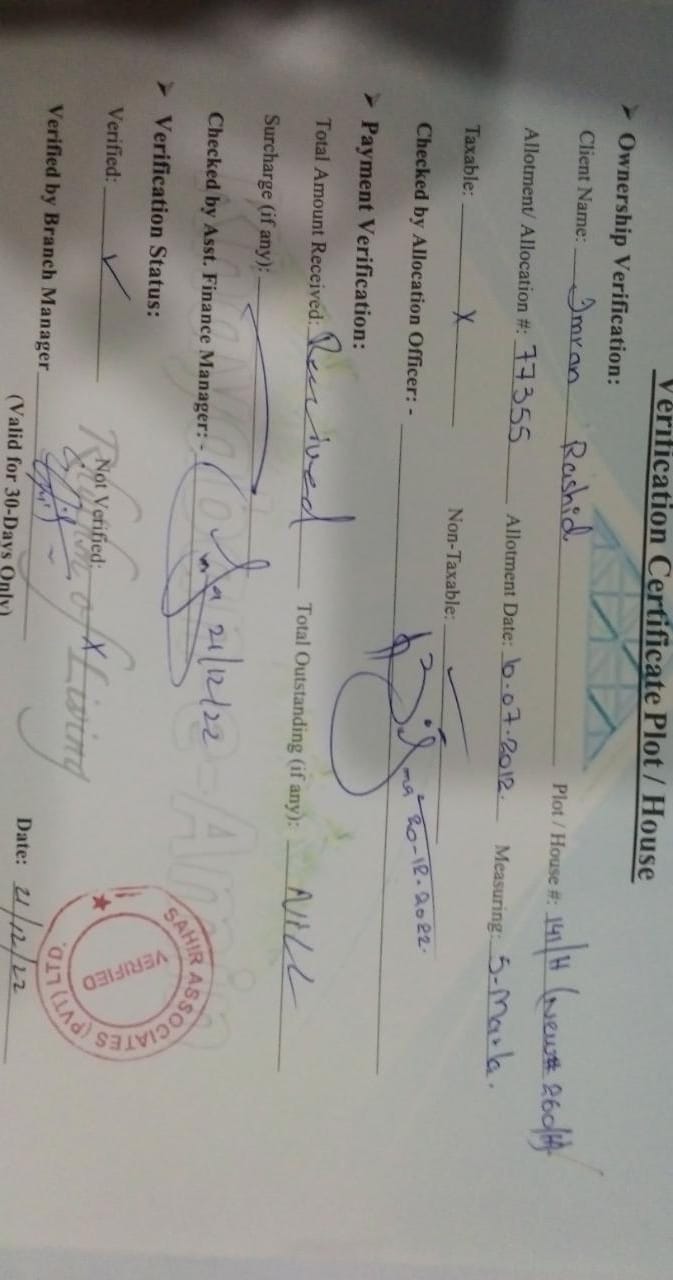 Verification Certificate Plot / House
➤ Ownership Verification:
Client Name: Imran Rashid Plot / House #: 141/H (New# 260/H)
Allotment/ Allocation #: 77355 Allotment Date: 6.07.2012. Measuring: 5-Marla.
Taxable: X Non-Taxable: ✓
Checked by Allocation Officer: - 20-12-2022.
➤ Payment Verification:
Total Amount Received: Received Total Outstanding (if any): NILL
Surcharge (if any):
Checked by Asst. Finance Manager: - 21/12/22
➤ Verification Status:
Verified: ✓ Not Verified: X
Verified by Branch Manager Date: 21/12/22
(Valid for 30-Days Only)
of Living
SAHIR ASSOCIATES (PVT) LTD.
VERIFIED